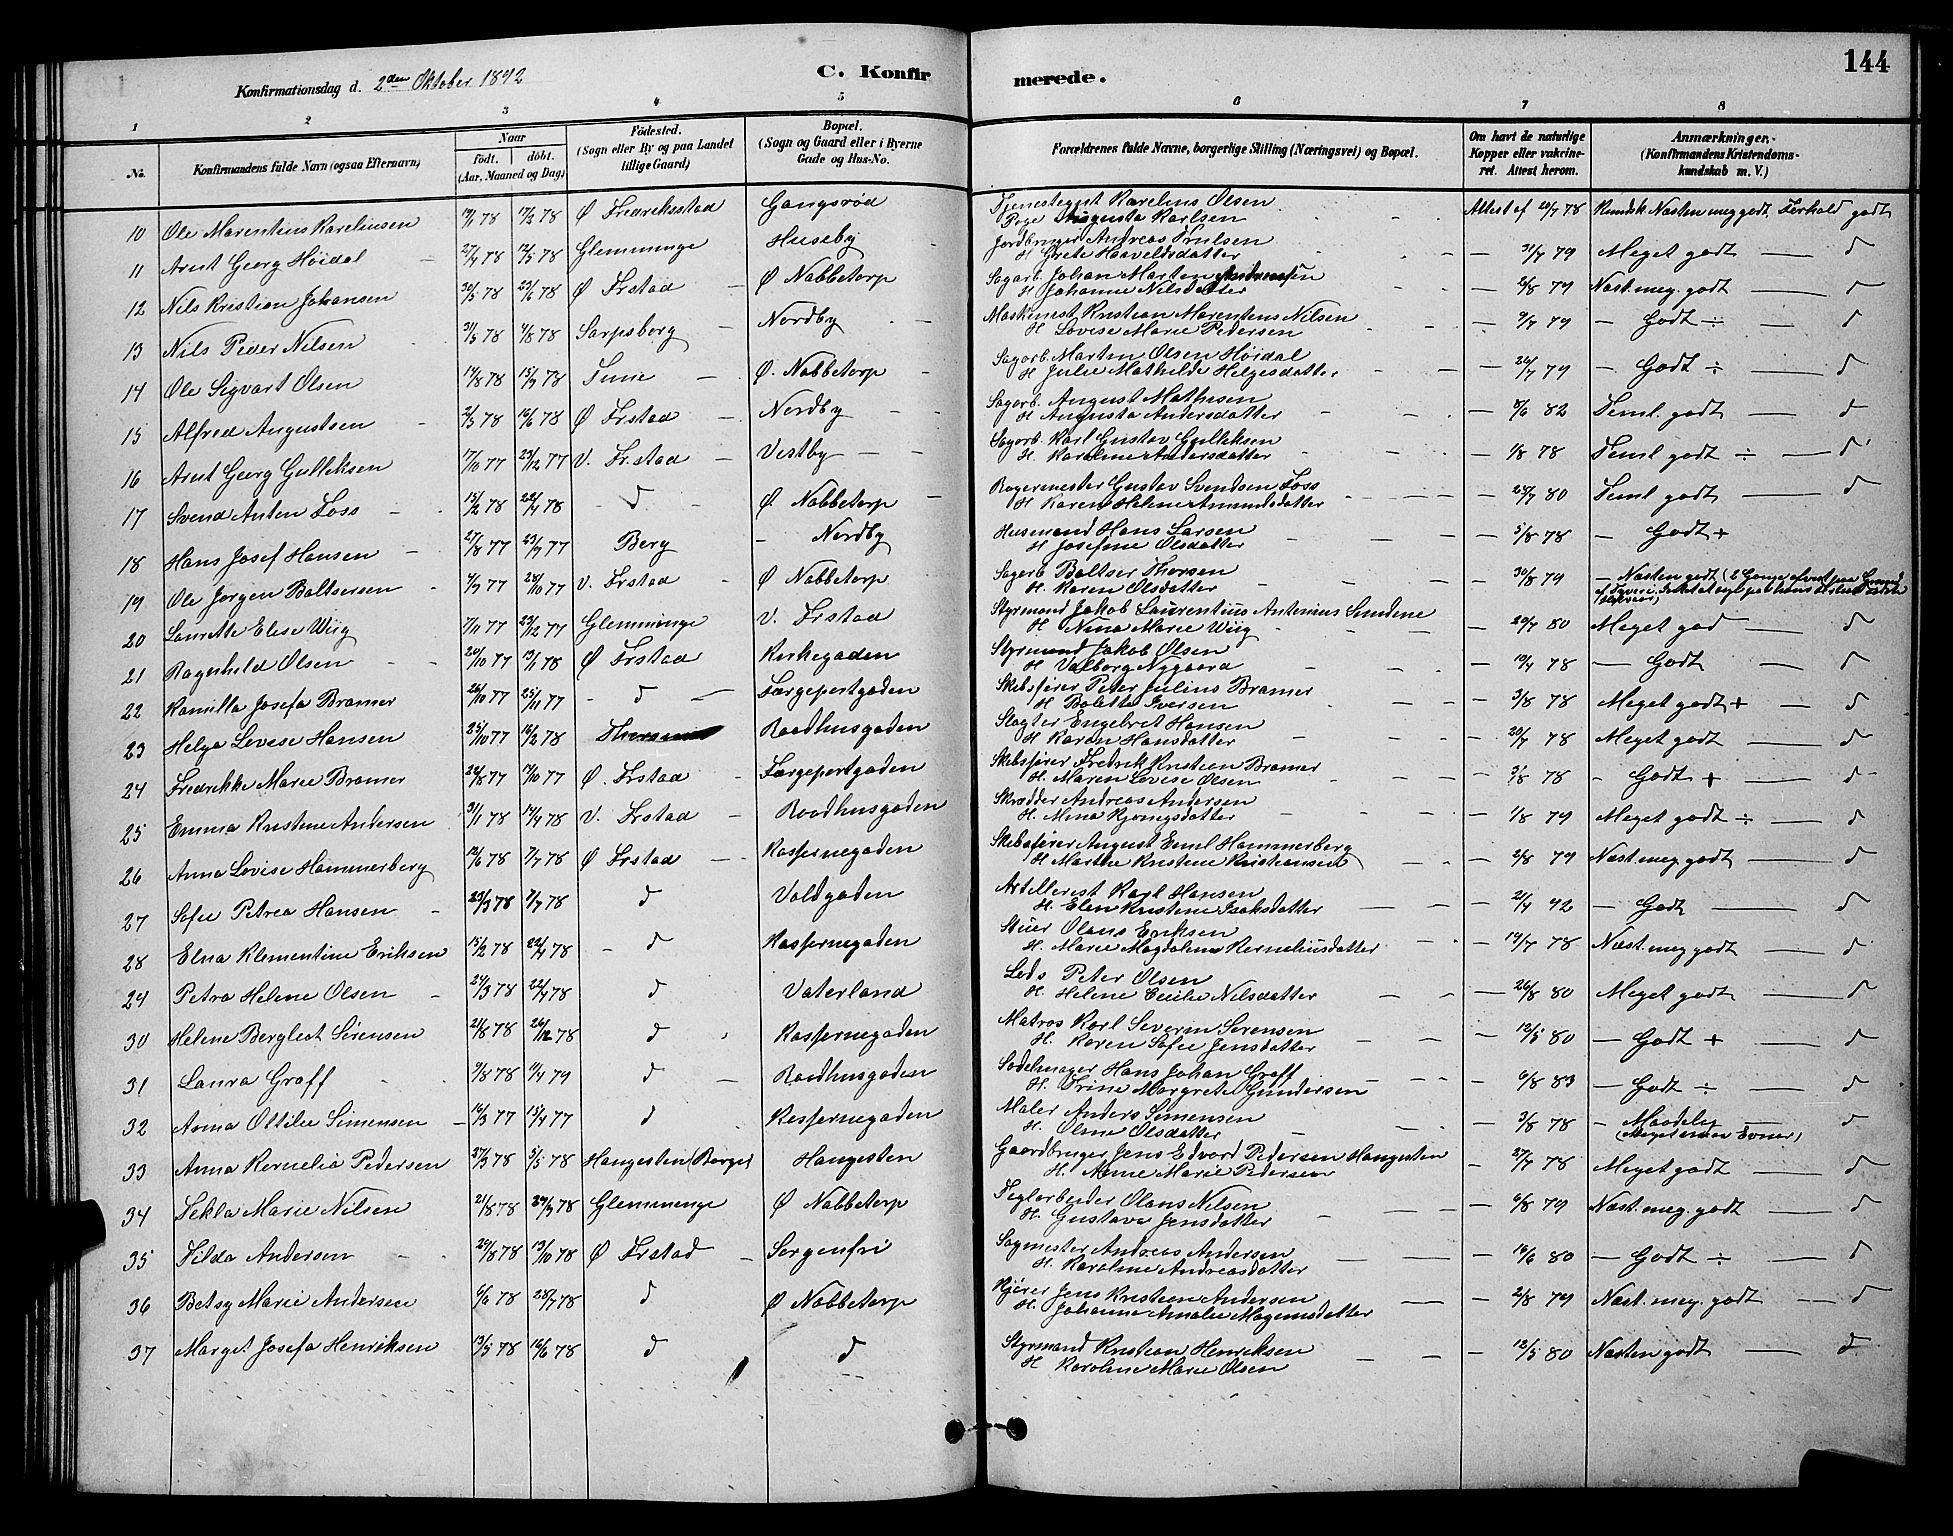 Konfirmationsdag d. 2den Oktober 1892
C. Konfirmerede.
144
1 2 3 4 5 6 7 8
No. Konfirmandens fulde Navn (ogsaa Efternavn)
Naar født. døbt. (Aar, Maaned og Dag)
Fødested. (Sogn eller By og paa Landet tillige Gaard)
Bopæl. (Sogn og Gaard eller i Byerne Gade og Hus-No.
Forældrenes fulde Navne, borgerlige Stilling (Næringsvei) og Bopæl.
Om havt de naturlige Kopper eller vakcineret. Attest herom.
Anmærkninger. (Konfirmandens Kristendomskundskab m. V.)
10 Ole Marentius Kareliusen 78 78 Ø Fredriksstad Gangsrød Tjenestegut Karelius Olsen Attest af 20/7 78 Kundsk. Næsten meg godt, Forhold godt
Pige Augusta Karlsen
11 Arnt Georg Høidal 27/4 78 12/5 78 Glemminge Huseby Jordbruger Andreas Trulsen 31/7 79 Meget godt — d
H Grete Haavelsdatter
12 Nils Kristian Johansen 30/5 78 23/6 78 Ø Frstad Ø Nabbetorp Sagarb. Johan Marten Andreasen 2/8 79 Næst. meg. godt — d
H Johanne Nilsdatter
13 Nils Peder Nilsen 31/5 78 4/8 78 Sarpsborg Nordby Maskinest Kristian Marentius Nilsen 9/7 79 — Godt ÷ — d
H. Lovise Marie Pedersen
14 Ole Sigvart Olsen 14/8 78 15/9 78 Tune Ø. Nabbetorp Sagarb. Marten Olsen Høidal 26/7 79 — Godt ÷ — d
H Julie Mathilde Helgesdatter
15 Alfred Augustsen 2/5 78 16/6 78 Ø Frstad Nordby Sagarb. August Mathisen 8/6 82 Teml. godt — d
H Augusta Andersdatter
16 Arnt Georg Gulleksen 17/10 77 23/12 77 V. Frstad Vestby Sagarb. Karl Gustav Gulleksen 1/8 78 Teml godt ÷ — d
H. Karoline Andersdatter
17 Svend Anton Foss 15/2 78 22/4 78 d Ø. Nabbetorp Bagermester Gustav Svendsen Foss 23/7 80 Teml godt — d
H Karen Helene Amundsdatter
18 Hans Josef Hansen 27/8 77 23/9 77 Berg Nordby Husmand Hans Larsen 5/8 78 — Godt +
H Josefine Olsdatter
19 Ole Jørgen Baltsersen 4/9 77 28/10 77 V. Frstad Ø Nabbetorp Sagarb Baltser Thorsen 30/8 79 — Næsten godt
H Karen Olsdatter
20 Laurette Elise Wiig 7/11 77 23/12 77 Glemminge V. Frstad Styrmand Jakob Laurentius Antonius Sundene 20/7 80 Meget god — d
H Nina Marie Wiig
21 Ragnhild Olsen 20/10 77 13/1 78 Ø Frstad Kirkegaden Styrmand Jakob Olsen 10/4 78 — Godt — d
H Valborg Nygaard
22 Kamilla Josefa Bramer 26/10 77 25/11 77 d Færgeportgaden Skibsfører Peter Julius Bramer 3/8 78 Meget godt + — d
H Bolette Iversen
23 Helga Lovise Hansen 25/10 77 16/2 78 Raadhusgaden Slagter Engebret Hansen 20/7 78 Meget godt — d
H Karen Hansdatter
24 Fredrikke Marie Bramer 26/8 77 14/10 77 Ø. Frstad Færgeportgaden Skibsfører Fredrik Kristian Bramer 3/8 78 — Godt + — d
H. Maren Lovise Olsen
25 Emma Kristine Andersen 31/1 78 14/4 78 V. Frstad Raadhusgaden Skrædder Andreas Andersen 1/8 79 Meget godt ÷ — d
H. Mina Kjøningsdatter
26 Anna Lovise Hammerberg 12/6 78 7/7 78 Ø Frstad Kasernegaden Skibsfører August Emil Hammerberg 2/8 79 Næst. meg godt — d
H Marthe Kristine Kristiansen
27 Sofie Petrea Hansen 23/3 78 7/7 78 d Voldgaden Artillerist Karl Hansen 21/4 92 — Godt — d
H. Elen Kristine Isaksdatter
28 Elna Klementine Eriksen 15/2 78 22/4 78 d Kasernegaden Stuer Olaus Eriksen 19/7 78 Næst. meg godt — d
H. Marie Magdalene Korneliusdatter
29 Petra Helene Olsen 24/3 78 22/4 78 d Vaterland Lods Peter Olsen 26/8 80 Meget godt — d
H. Helene Cecilie Nilsdatter
30 Helene Bergliot Sørensen 21/8 78 26/12 78 d Kasernegaden Matros Karl Severin Sørensen 12/5 80 — Godt + — d
H. Karen Sofie Jensdatter
31 Laura Graff 9/8 78 11/4 79 d Raadhusgaden Sadelmager Hans Johan Graff 6/8 83 — Godt ÷ — d
H. Trine Margrete Gundersen
32 Anna Ottilie Simensen 16/3 77 15/4 77 d Kasernegaden Maler Anders Simensen 3/8 78 — Maadelig — d
H. Oline Olsdatter (Meget smaa Evner)
33 Anna Kornelia Pedersen 27/3 78 5/5 78 Haugesten (Borge) Haugesten Gaardbruger Jens Edvard Pedersen Haugesten 27/7 78 Meget godt — d
H. Anne Marie Pedersen
34 Tekla Marie Nilsen 21/8 78 29/9 78 Glemminge Ø Nabbetorp Teglarbeider Olaus Nilsen 6/8 79 Næst. meg. godt — d
H. Gustava Jensdatter
35 Tilda Andersen 29/8 78 13/10 78 Ø Frstad Sorgenfri Sagmester Andreas Andersen 16/6 80 — Godt ÷ — d
H. Karoline Andreasdatter
36 Betsy Marie Andersen 6/6 78 28/7 78 d Ø Nabbetorp Kjører Jens Kristian Andersen 2/8 79 Næst. meg. godt — d
H. Johanne Amalie Magnusdatter
37 Marget Josefa Henriksen 13/5 78 16/6 78 d d Styrmand Kristian Henriksen 12/5 80 Næsten godt — d
H Karoline Marie Olsen